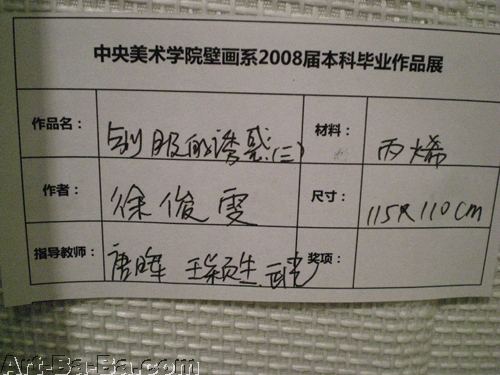 中央美术学院壁画系2008届本科毕业作品展
作品名： 制服的诱惑(三) 材料： 丙烯
作者： 徐俊雯 尺寸： 115X110cm
指导教师： 唐晖 王颖生 奖项：
Art-Ba-Ba.com